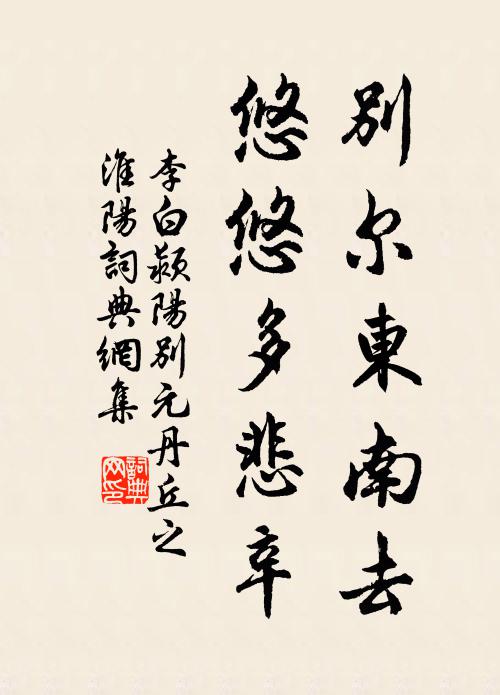 別尔東南去
悠悠多悲辛
李白潁陽別元丹丘之
淮陽詞典網集
詞典
网印